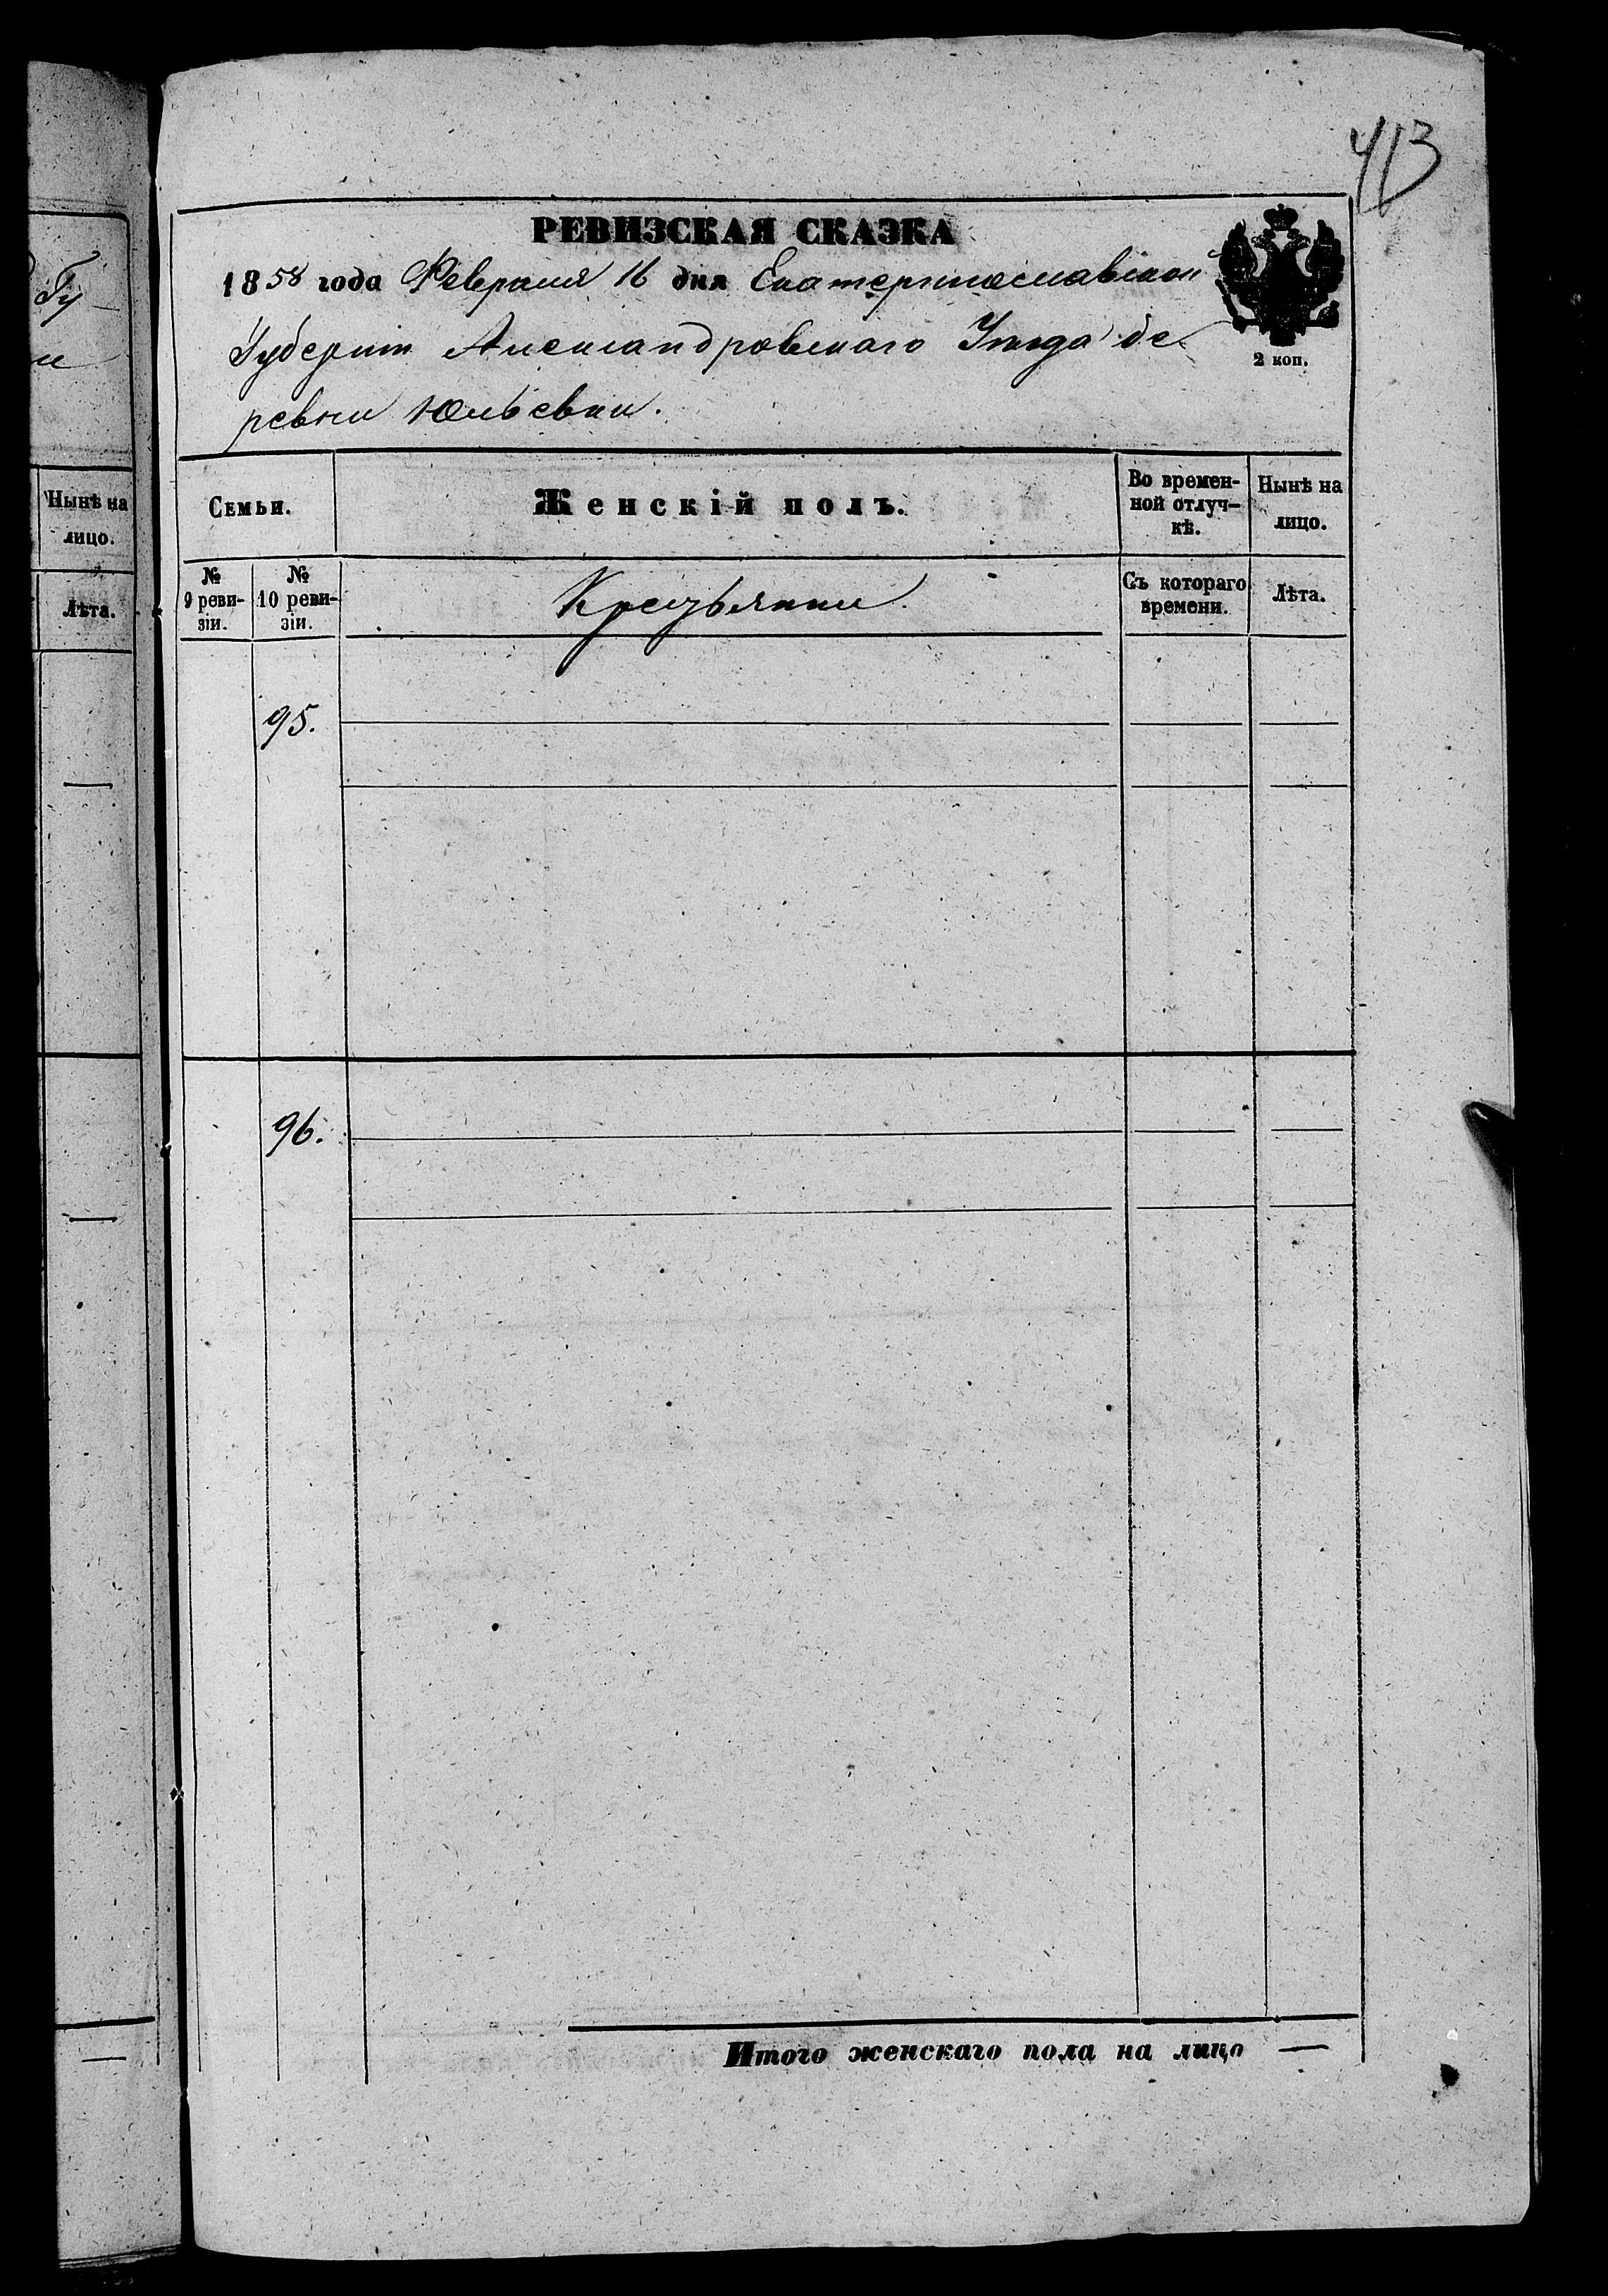 413
РЕВИЗСКАЯ СКАЗКА
1858 года Февраля 16 дня Екатеринославской
Губерніи Александровскаго Уѣзда де-
ревни Юльевки.
2 коп.
Семьи.
Женскій полъ.
Во времен-
ной отлуч-
кѣ.
Нынѣ на
лицо.
№
9 реви-
зіи.
№
10 реви-
зіи.
Крестьянки.
Съ котораго
времени.
Лѣта.
95.
96.
Итого женскаго пола на лицо —
Гу
и
Нынѣ на
лицо.
Лѣта.